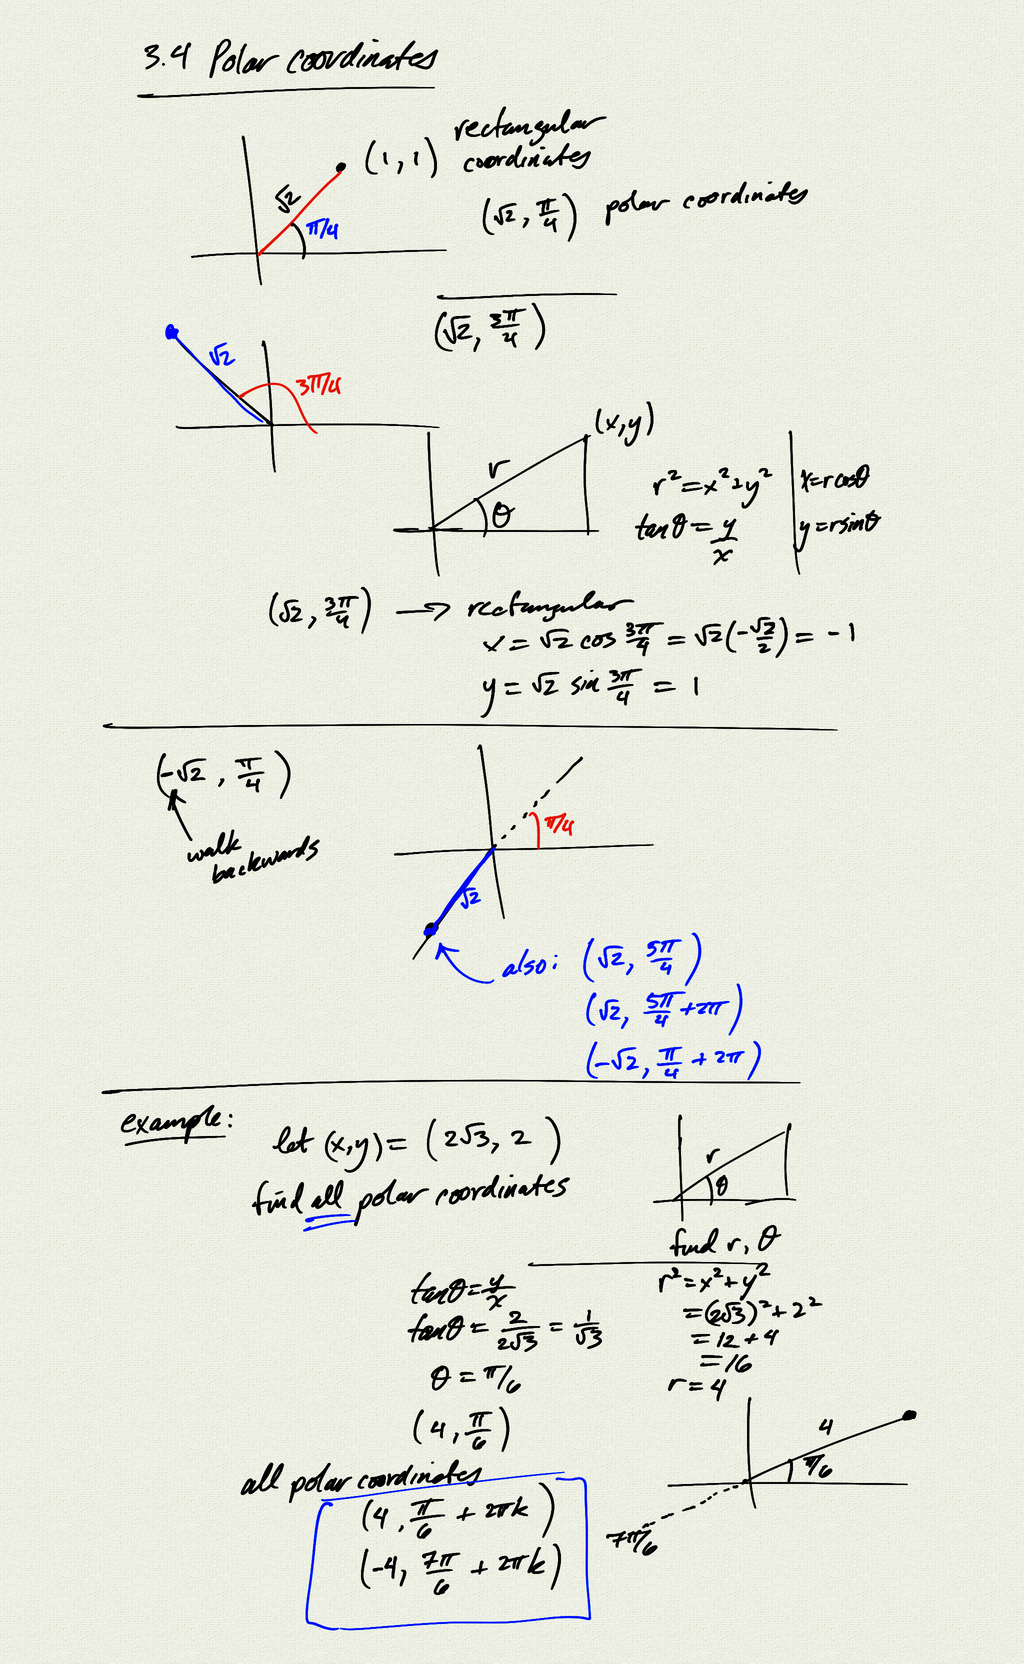 3.4 Polar coordinates
(1, 1) rectangular coordinates
√2
π/4
(√2, π/4) polar coordinates
(√2, 3π/4)
√2
3π/4
(x,y)
r
θ
r² = x² + y²
tanθ = y/x
x = r cosθ
y = r sinθ
(√2, 3π/4) → rectangular
x = √2 cos 3π/4 = √2(-√2/2) = -1
y = √2 sin 3π/4 = 1
(-√2, π/4)
walk
backwards
π/4
√2
also: (√2, 5π/4)
(√2, 5π/4 + 2π)
(-√2, π/4 + 2π)
example:
let (x,y) = (2√3, 2)
find all polar coordinates
r
θ
find r, θ
r² = x² + y²
= (2√3)² + 2²
= 12 + 4
= 16
r = 4
tanθ = y/x
tanθ = 2/2√3 = 1/√3
θ = π/6
(4, π/6)
4
π/6
7π/6
all polar coordinates
(4, π/6 + 2πk)
(-4, 7π/6 + 2πk)